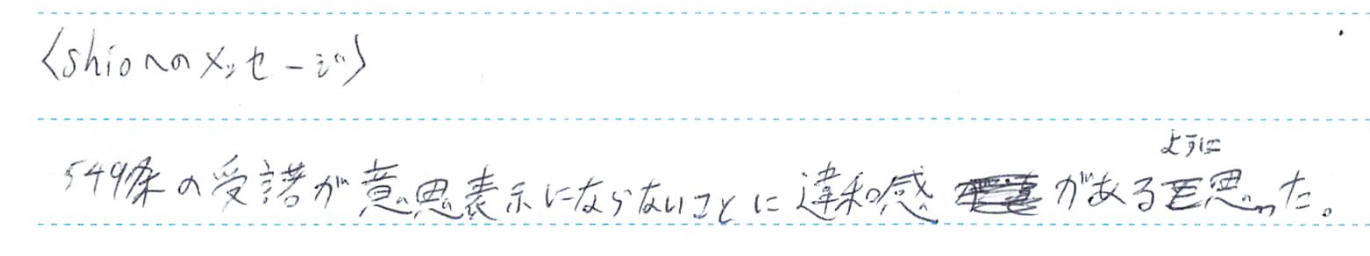 〈shioへのメッセージ〉
549条の受諾が意思表示にならないことに違和感があるように思った。